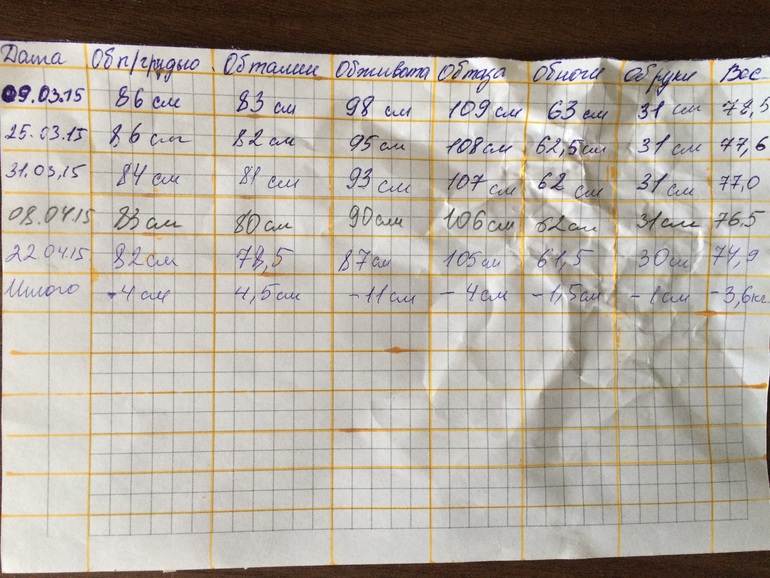 Дата Об п/грудью Об талии Об живота Об таза Об ноги Об руки Вес
09.03.15 86 см 83 см 98 см 109 см 63 см 31 см 78,5
25.03.15 86 см 82 см 95 см 108 см 62,5 см 31 см 77,6
31.03.15 84 см 81 см 93 см 107 см 62 см 31 см 77,0
08.04.15 83 см 80 см 90 см 106 см 62 см 31 см 76.5
22.04.15 82 см 78,5 87 см 105 см 61,5 30 см 74,9
Итого -4 см 4,5 см -11 см -4 см -1,5 см -1 см -3,6 кг